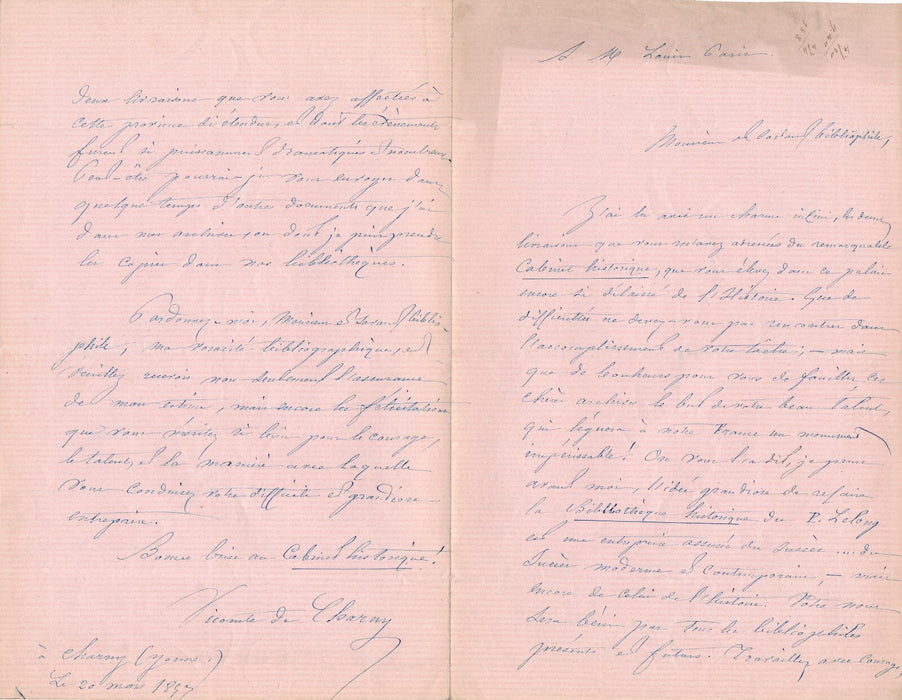 A. M Louis Paris.
Monsieur et savant bibliophile,
J'ai lu avec un charme infini, les deux
livraisons que vous m'avez adressées du remarquable
Cabinet historique, que vous élevez dans ce palais
encore si délaissé de l'Histoire. Que de
difficultés ne devez-vous pas rencontrer dans
l'accomplissement de votre tâche; – mais
que de bonheurs pour vous de fouiller ces
chères archives, le but de votre beau talent,
qui léguera à notre France un monument
impérissable! On vous l'a dit, je pense
avant moi, l'idée grandiose de refaire
la Bibliothèque historique du P. Lelong
est une entreprise assurée du succès ... du
succès moderne et contemporain, – mais
encore de celui de l'histoire. Votre nom
sera béni par tous les bibliophiles
présents et futurs. Travaillez avec courage,
deux livraisons que vous avez affectées à
cette province si étendue, et dont les évènements
furent si puissamment dramatiques et nombreux.
Peut-être pourrai-je vous envoyer dans
quelque temps d'autres documents que j'ai
dans mes archives, ou dont je puis prendre
les copies dans nos bibliothèques.
Pardonnez-moi, Monsieur et savant biblio-
phile, ma voracité bibliographique, et
veuillez recevoir non seulement l'assurance
de mon estime, mais encore les félicitations
que vous méritez si bien pour le courage,
le talent, et la manière avec laquelle
vous conduisez votre difficile et grandiose
entreprise.
Bonne brise au Cabinet historique!
Vicomte de Charny
à Charny (Yonne)
Le 20 mars 1857